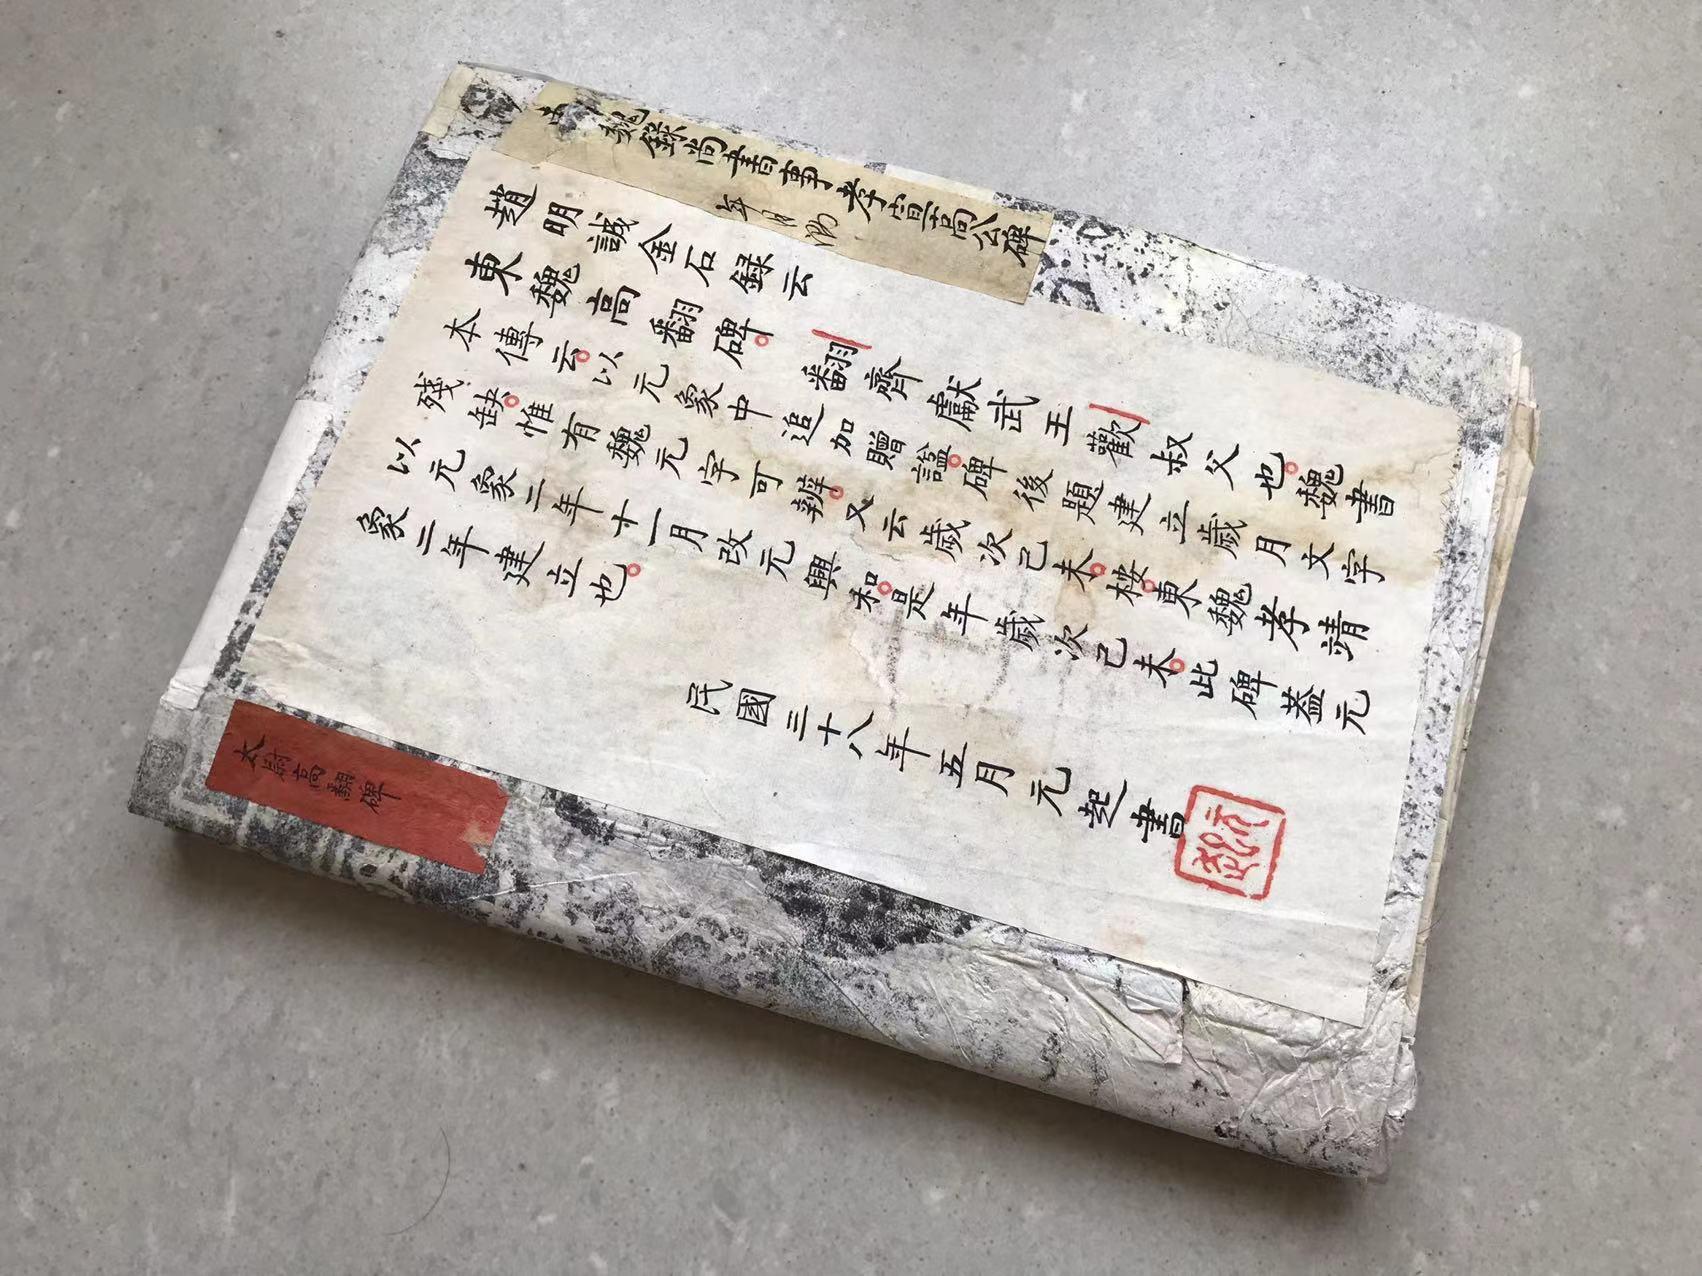 東魏錄尚書事孝宣高公碑
年月泐
趙明誠金石録云
東魏高翻碑。翻齊獻武王歡叔父也。魏書
本傳云。以元象中追加贈諡。碑後題建立歲月文字
殘缺。惟有魏元字可辨。又云歲次己未。桉。東魏孝靖
以元象二年十一月改元興和。是年歲次己未。此碑蓋元
象二年建立也。
民國三十八年五月元起書
元起
太尉高翻碑